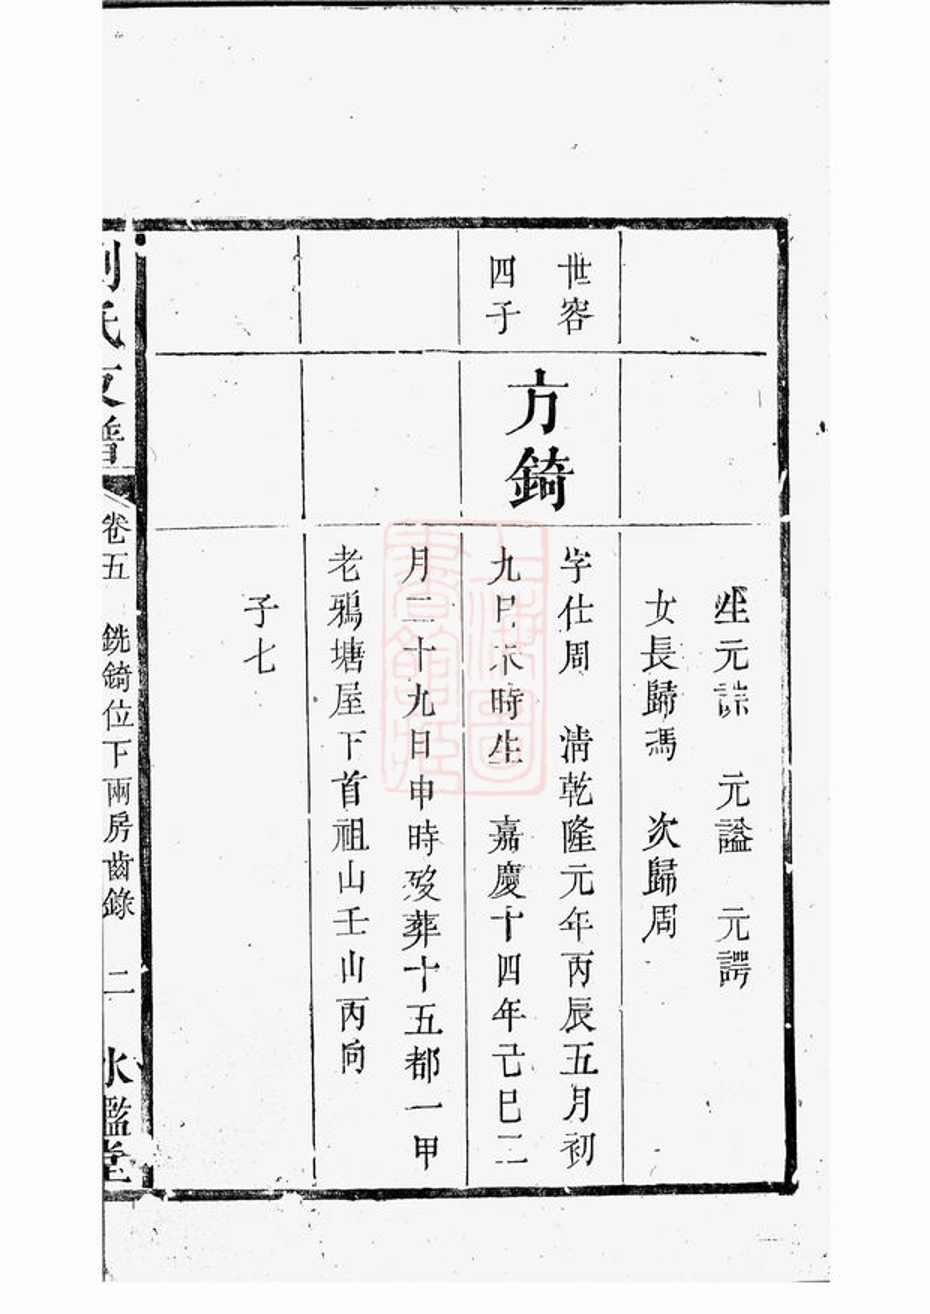 生元誴　元謚　元諤
女長歸馮　次歸周
世容
四子
方錡
字仕周　清乾隆元年丙辰五月初
九日未時生　嘉慶十四年己巳二
月二十九日申時歿葬十五都一甲
老鴉塘屋下首祖山壬山丙向
子七
劉氏支譜　卷五　銑錡位下兩房齒錄　二　水鑑堂
上海圖
書館藏